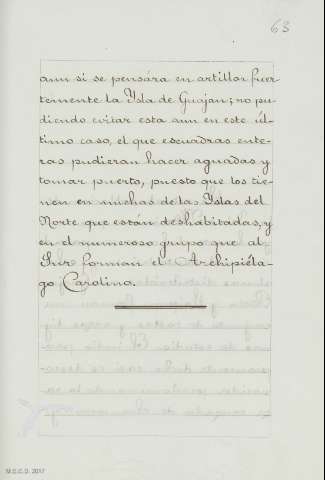 63
aun si se pensára en artillar fuer-
temente la Ysla de Guajan; no pu-
diendo evitar esta aun en este úl-
timo caso, el que escuadras ente-
ras pudieran hacer aguadas y
tomar puerto, puesto que los tie-
nen en muchas de las Yslas del
Norte que están deshabitadas, y
en el numeroso grupo que al
Sur forman el Archipiéla-
go Carolino.
M.E.C.D. 2017